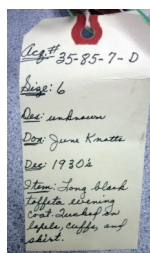 Acq.# 35-85-7-D
Size: 6
Des: unknown
Don: June Knotts
Dec: 1930's
Item: Long black
taffeta evening
coat. Tucked on
lapels, cuffs, and
skirt.